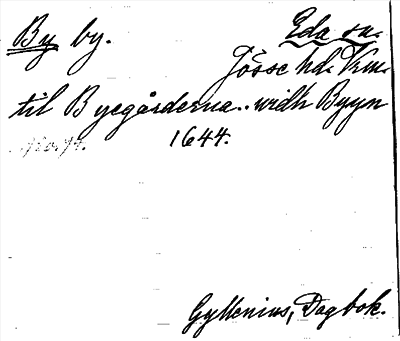 By by. Eda sn.
Jösse hd. Vrm.
til Byegårderna.. widh Byyn
1644.
Gyllenius, Dagbok.